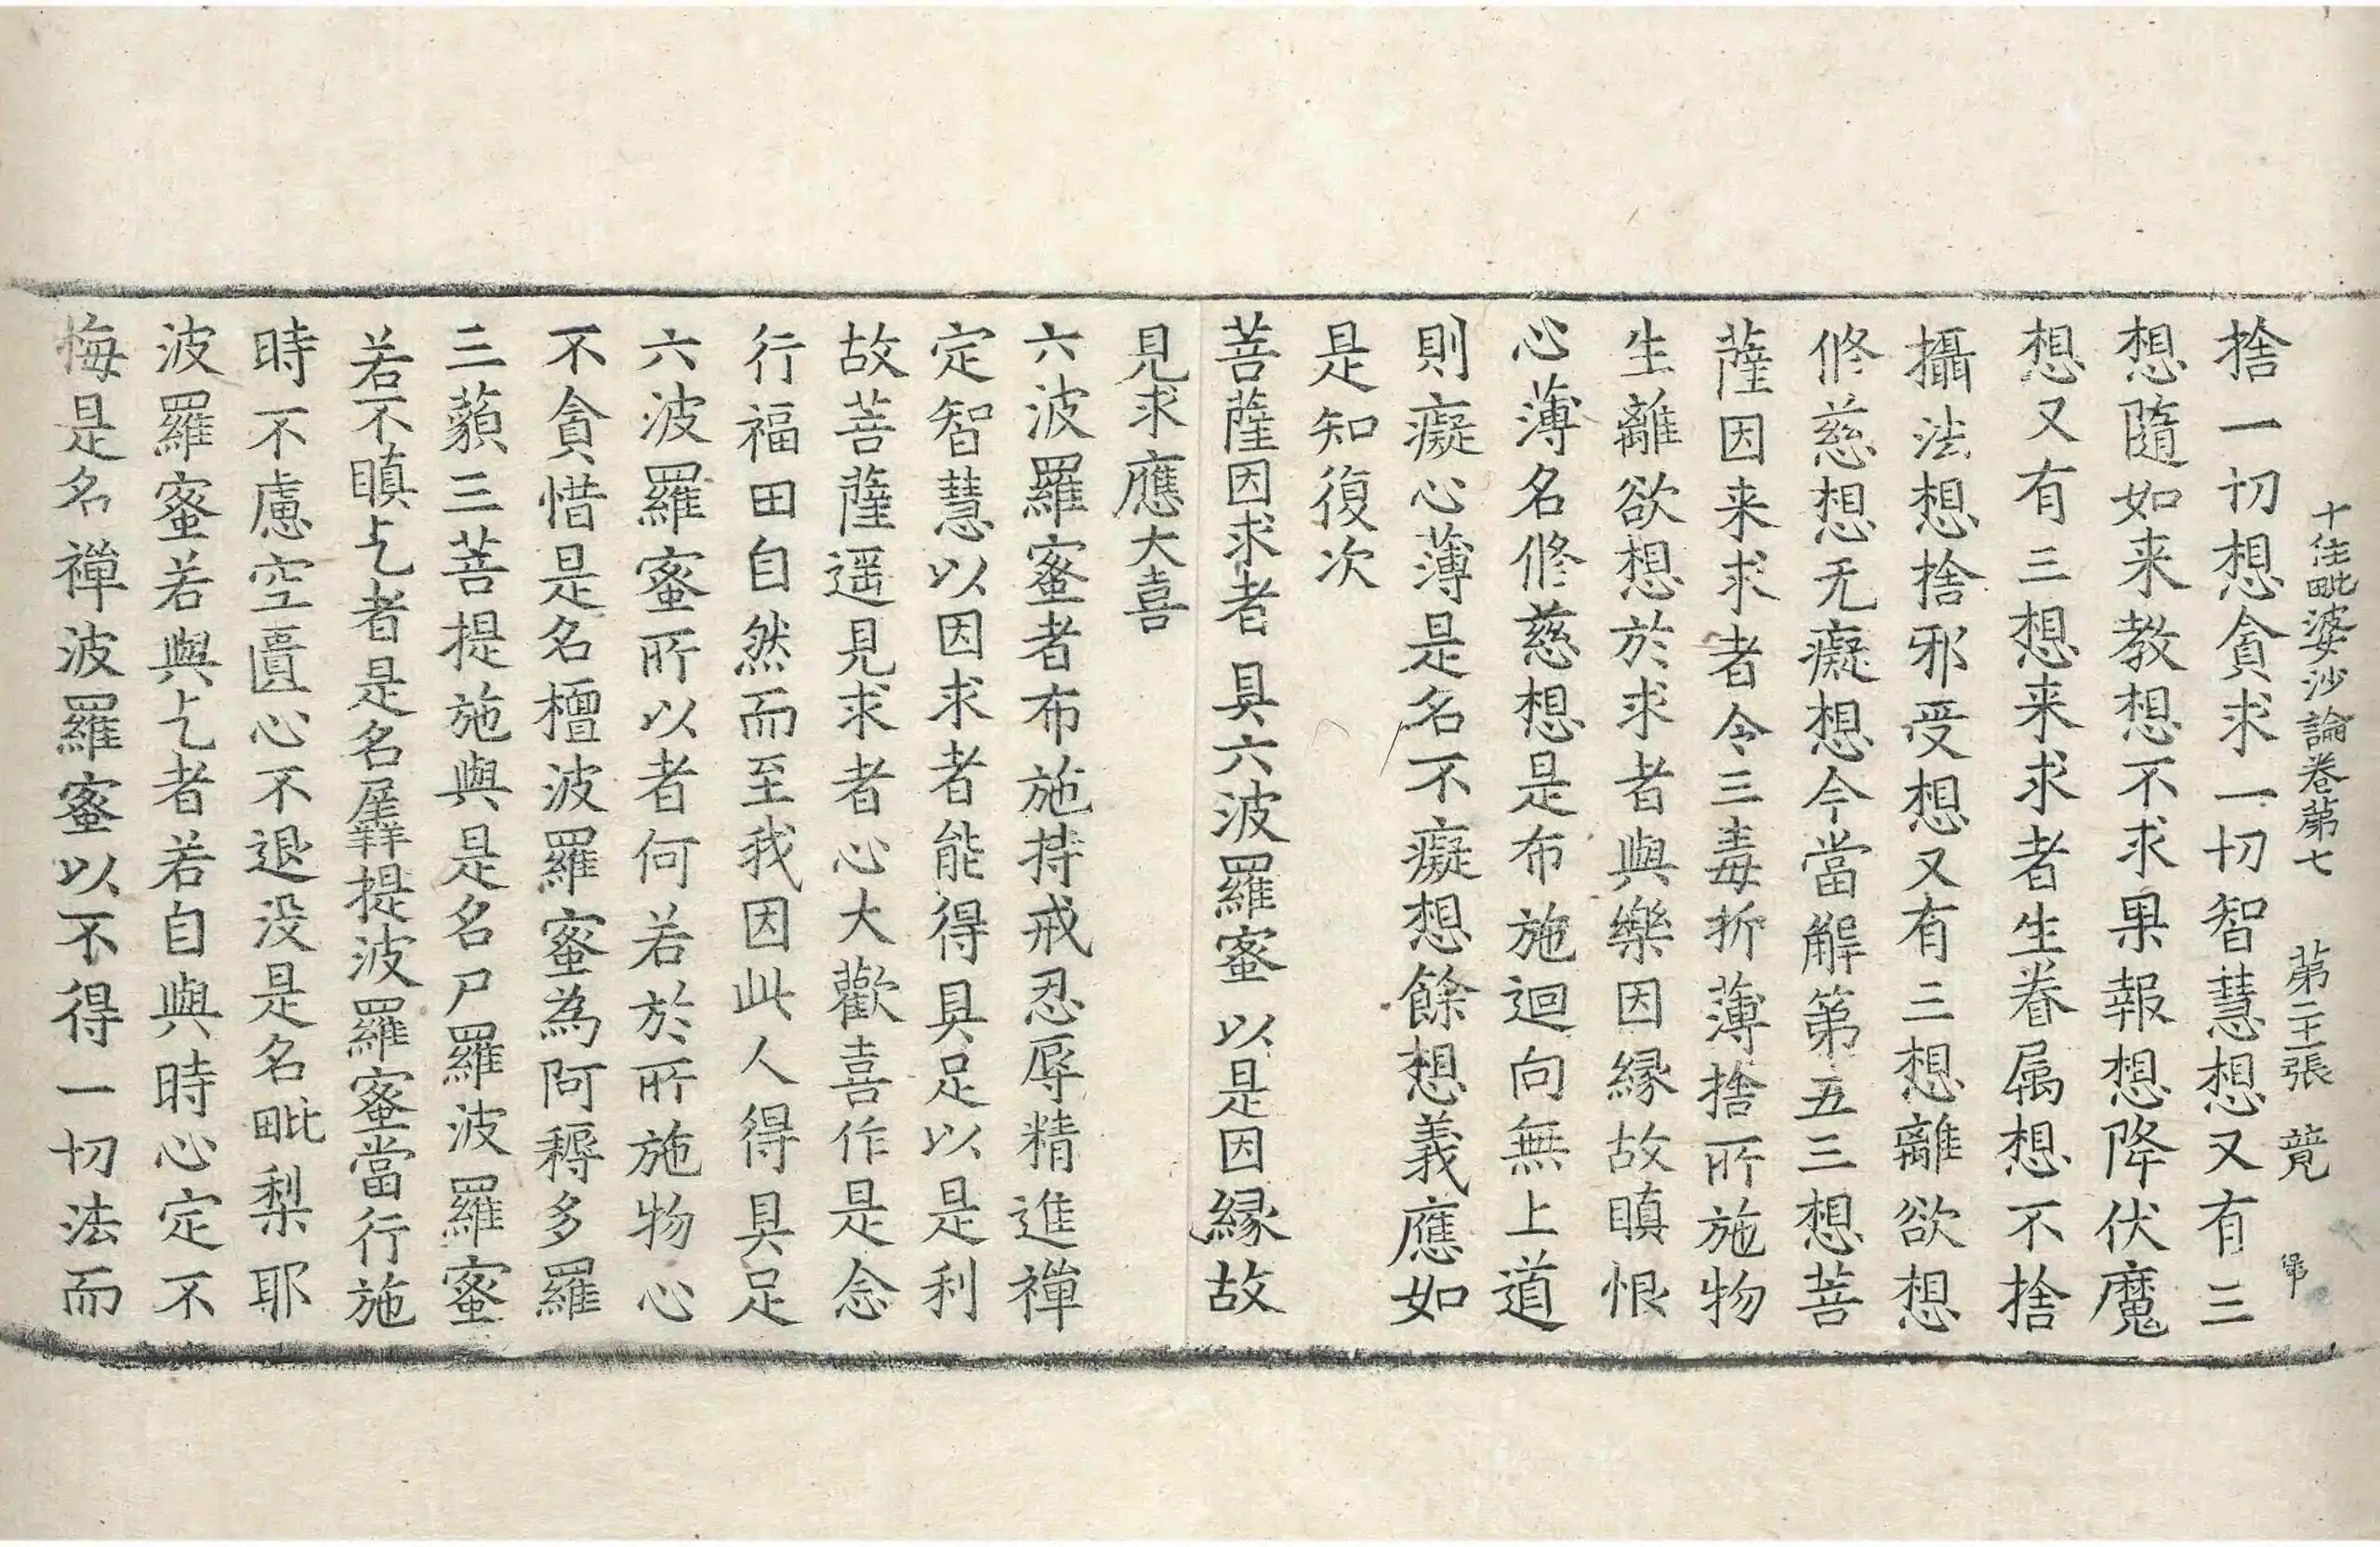 十住毗婆沙論卷第七 第二十張 競
捨一切想貪求一切智慧想又有三
想隨如来教想不求果報想降伏魔
想又有三想来求者生眷属想不捨
攝法想捨邪受想又有三想離欲想
修慈想无癡想今當解第五三想菩
薩因来求者令三毒折薄捨所施物
生離欲想於求者與樂因緣故瞋恨
心薄名修慈想是布施迴向無上道
則癡心薄是名不癡想餘想義應如
是知復次
菩薩因求者 具六波羅蜜 以是因緣故
見求應大喜
六波羅蜜者布施持戒忍辱精進禪
定智慧以因求者能得具足以是利
故菩薩遥見求者心大歡喜作是念
行福田自然而至我因此人得具足
六波羅蜜所以者何若於所施物心
不貪惜是名檀波羅蜜為阿耨多羅
三藐三菩提施與是名尸羅波羅蜜
若不瞋乞者是名羼提波羅蜜當行施
時不慮空匱心不退没是名毗梨耶
波羅蜜若與乞者若自與時心定不
悔是名禪波羅蜜以不得一切法而